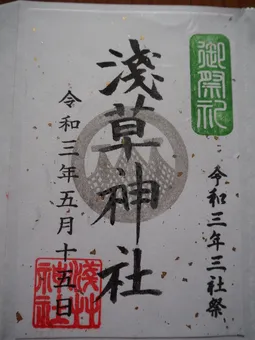 御祭礼
令和三年三社祭
淺草神社
令和三年五月十五日
淺草神社